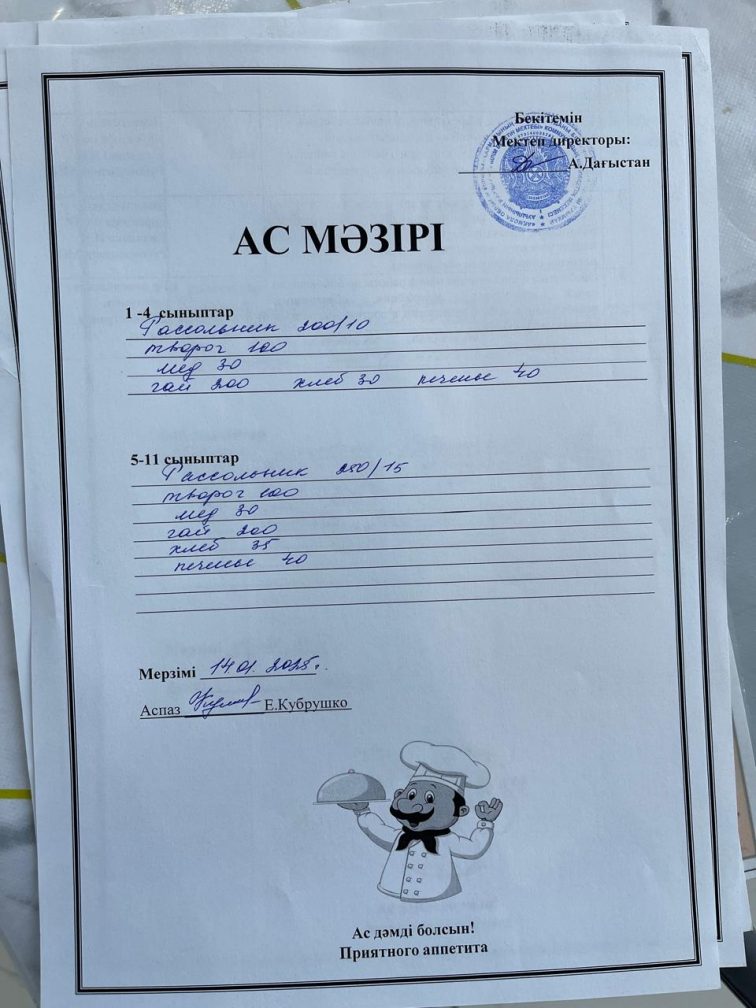 Бекітемін
Мектеп директоры:
А.Дағыстан
АС МӘЗІРІ
1 -4 сыныптар
Рассольник 200/10
творог 100
мед 30
чай 200 хлеб 30 печенье 40
5-11 сыныптар
Рассольник 250/15
творог 100
мед 30
чай 200
хлеб 35
печенье 40
Мерзімі 14.01.2025г.
Аспаз Е.Кубрушко
Ас дәмді болсын!
Приятного аппетита